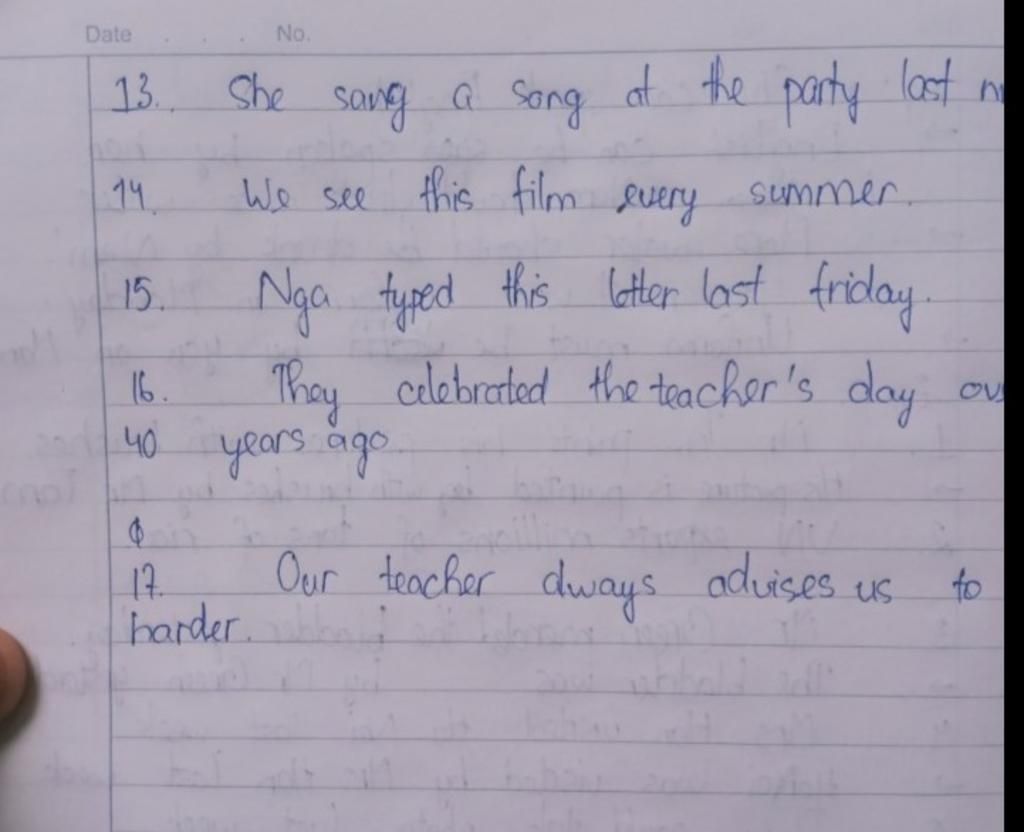 Date . . . No.
13. She sang a song at the party last
14. We see this film every summer.
15. Nga typed this letter last friday.
16. They celebrated the teacher's day
40 years ago.
17. Our teacher always advises us to
harder.